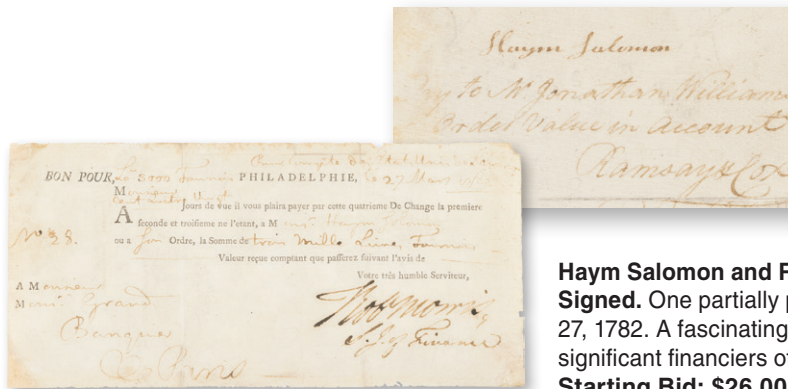 Haym Salomon
Pay to Mr Jonathan Williams
Order Value in Account
Ramsay & Cox
BON POUR, PHILADELPHIE, 27 Mars
Monsieur
A Jours de vüe il vous plaira payer par cette quatrieme De Change la premiere
seconde et troisieme ne l'etant, a M Haym
No 28.
ou a son Ordre, la Somme de trois Mille Livres Tournois
Valeur reçue comptant que passerez suivant l'avis de
Votre très humble Serviteur,
A Monsieur
Monsr. Grand
Banquier
à Paris
Robt Morris
S. I. of Finance
Haym Salomon and R
Signed. One partially p
27, 1782. A fascinating
significant financiers o
Starting Bid: $26,00